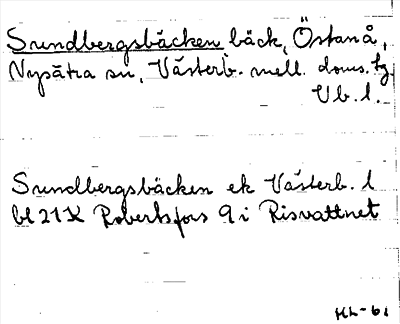 Sundbergsbäcken, bäck, Östanå,
Nysätra sn, Västerb. mell. doms. tg.
Vb. l.
Sundbergsbäcken ek Västerb. l
bl 21K Robertsfors 9i Risvattnet
HL-61